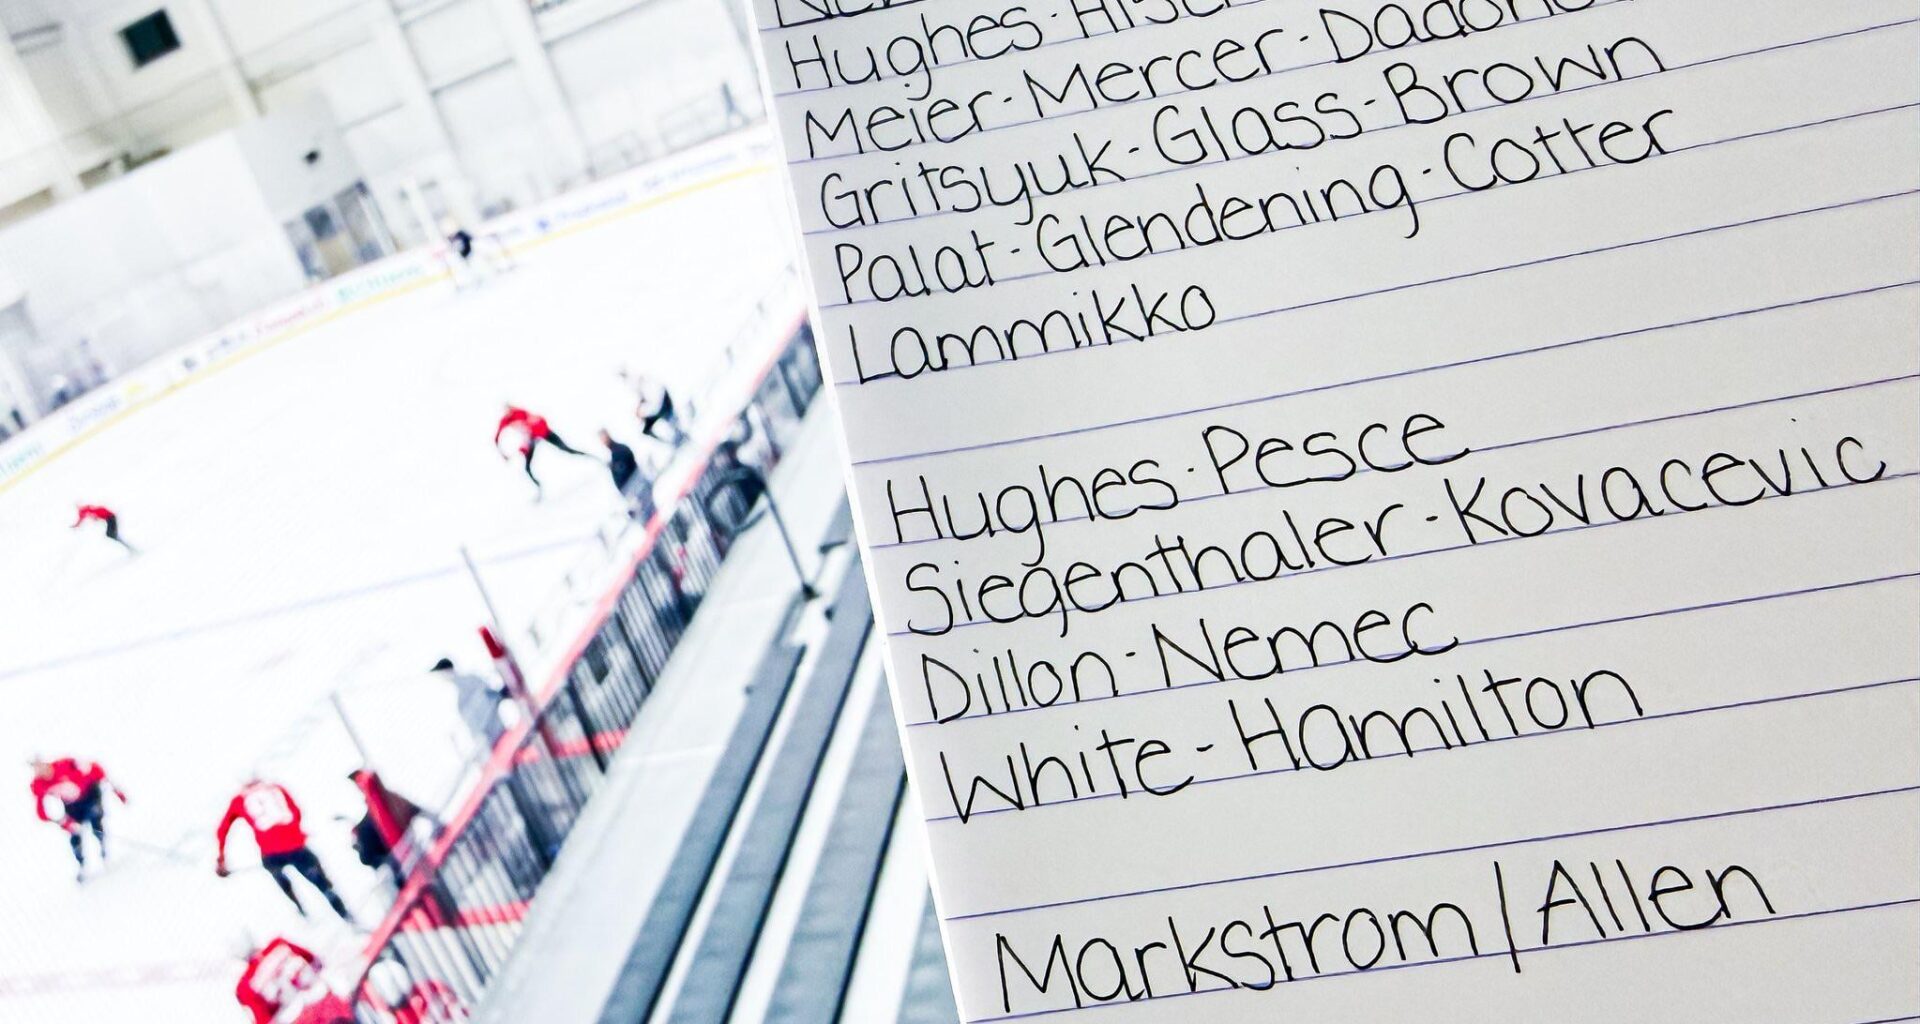 Hughes-
Meier-Mercer-
Gritsyuk-Glass-Brown
Palat-Glendening-Cotter
Lammikko
Hughes-Pesce
Siegenthaler-Kovacevic
Dillon-Nemec
White-Hamilton
Markstrom/Allen